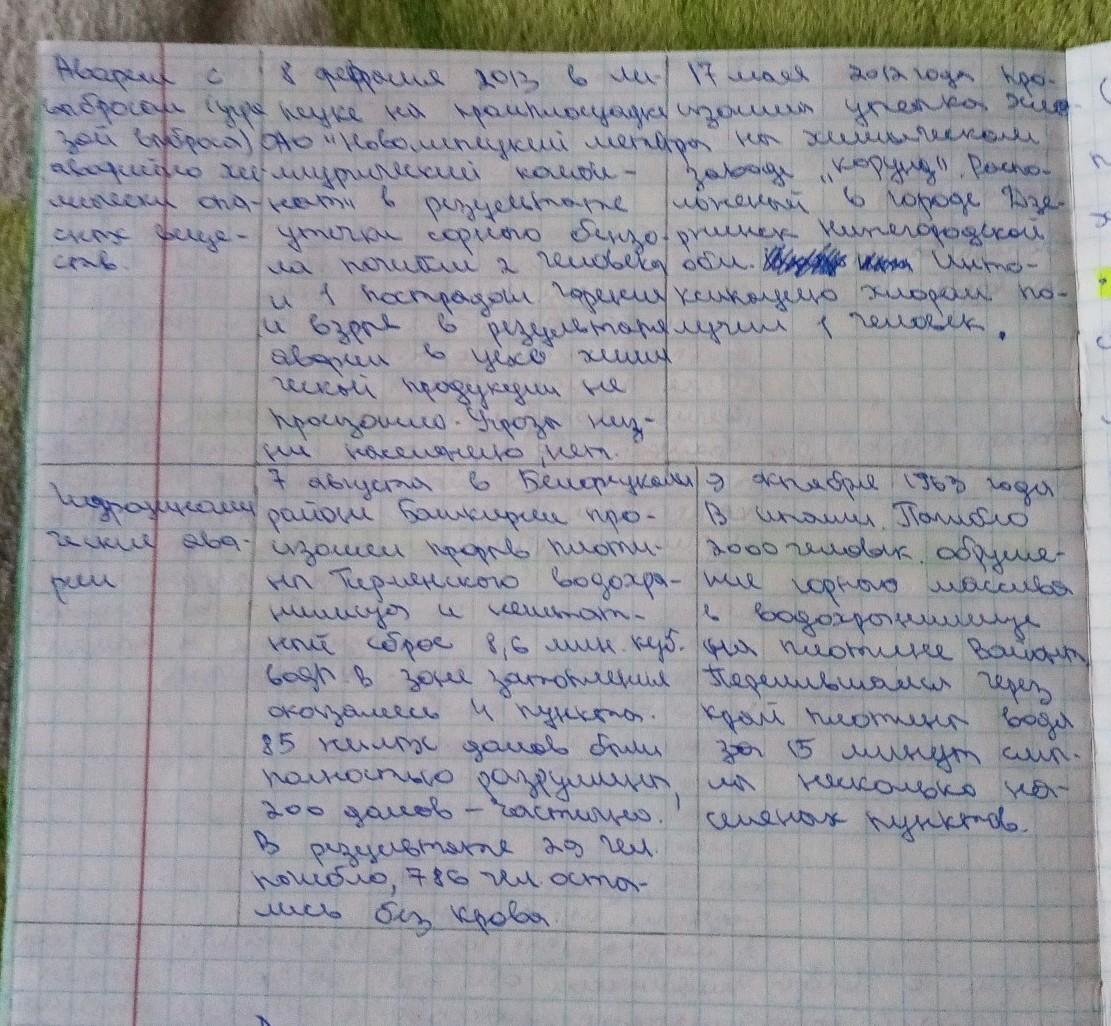 Аварии с
выбросом (угро
зой выброса)
аварийно хи
мически опа-
сных веще-
ств.
8 февраля 2013 в ли-
пецке на промплощадке
ОАО "Новолипецкий метал
лургический комби-
нат" в результате
утечки сорного бензо
ла погибли 2 человека
и 1 пострадал горения
и взрыв в результате
аварии в цехе хими
ческой продукции не
произошло. Угрозы жиз-
ни населению нет.
17 мая 2012 года про-
изошла утечка хло
ра на химическом
заводе „корунд". Распо-
ложеный в городе Дзе-
ржинск Нижегородской
обл. Инто-
ксикацию хлором по-
лучил 1 человек.
Гидродинами
ческие ава-
рии
7 августа в Белорецком
районе Башкирии про-
изошел прорыв плоти-
ны Тирлянского водохра-
нилища и нештат-
ный сброс 8,6 млн. куб.
воды в зоне затопления
оказались 4 пункта.
85 жилых домов были
полностью разрушены,
200 домов - частично.
В результате 29 чел.
погибло, 786 чел оста-
лись без крова.
9 октября 1963 года
В италии. Погибло
2000 человек. обруше-
ние горного массива
в водохранилище
на плотине Вайонт
Перелившаяся через
край плотины вода
за 15 минут смы-
ла несколько на-
селеных пунктов.